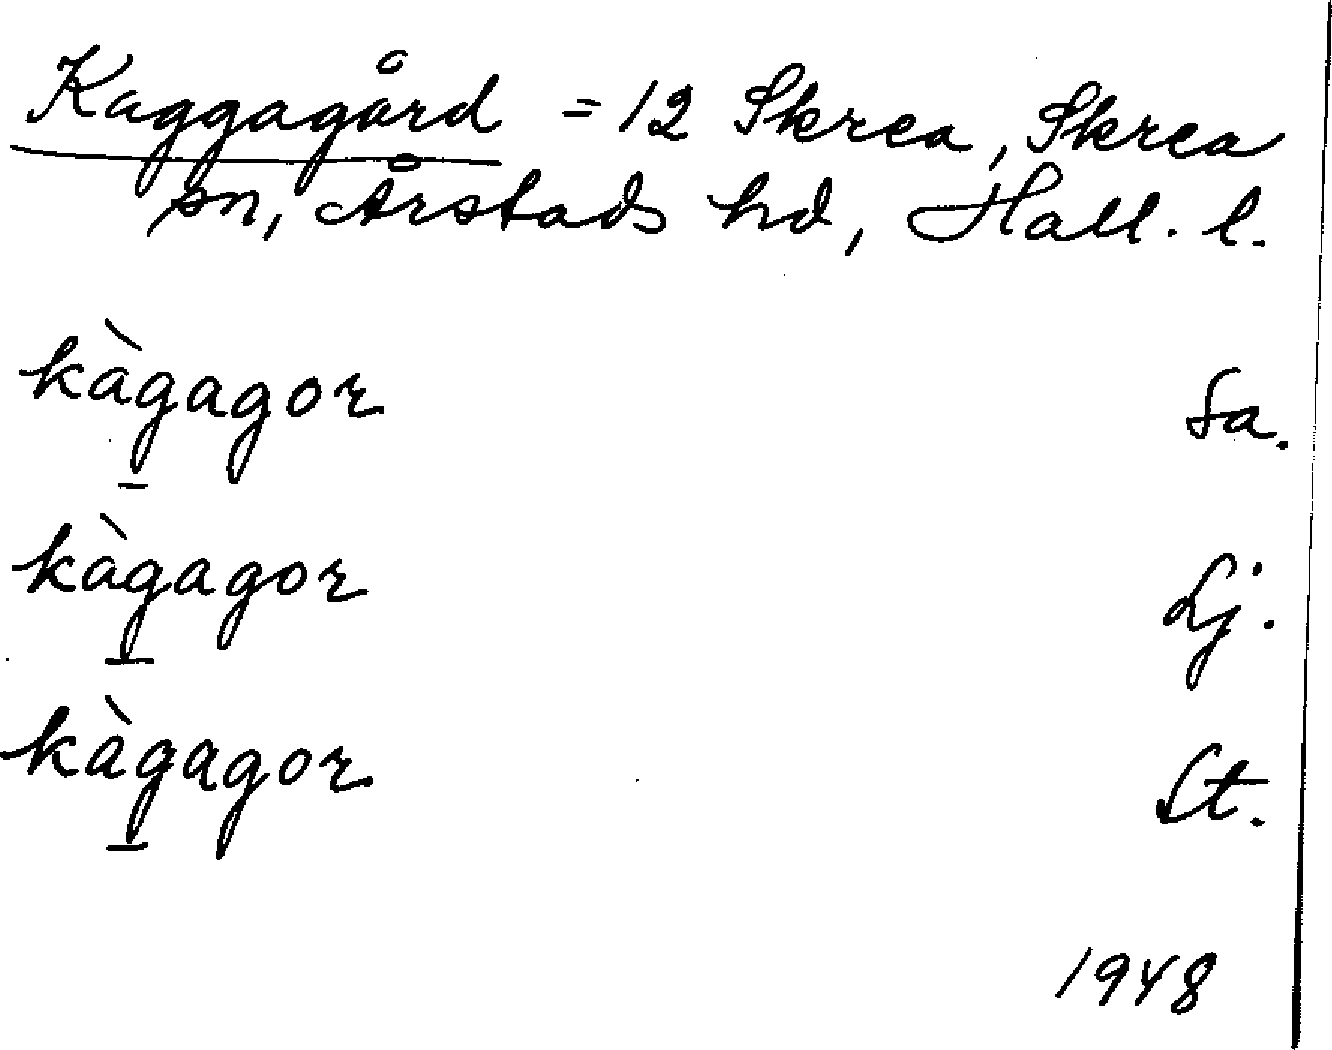 Kaggagård = 12 Skrea, Skrea
sn, Årstads hd, Hall. l.
kàgagor Sa.
kàgagor Lj.
kàgagor St.
1948